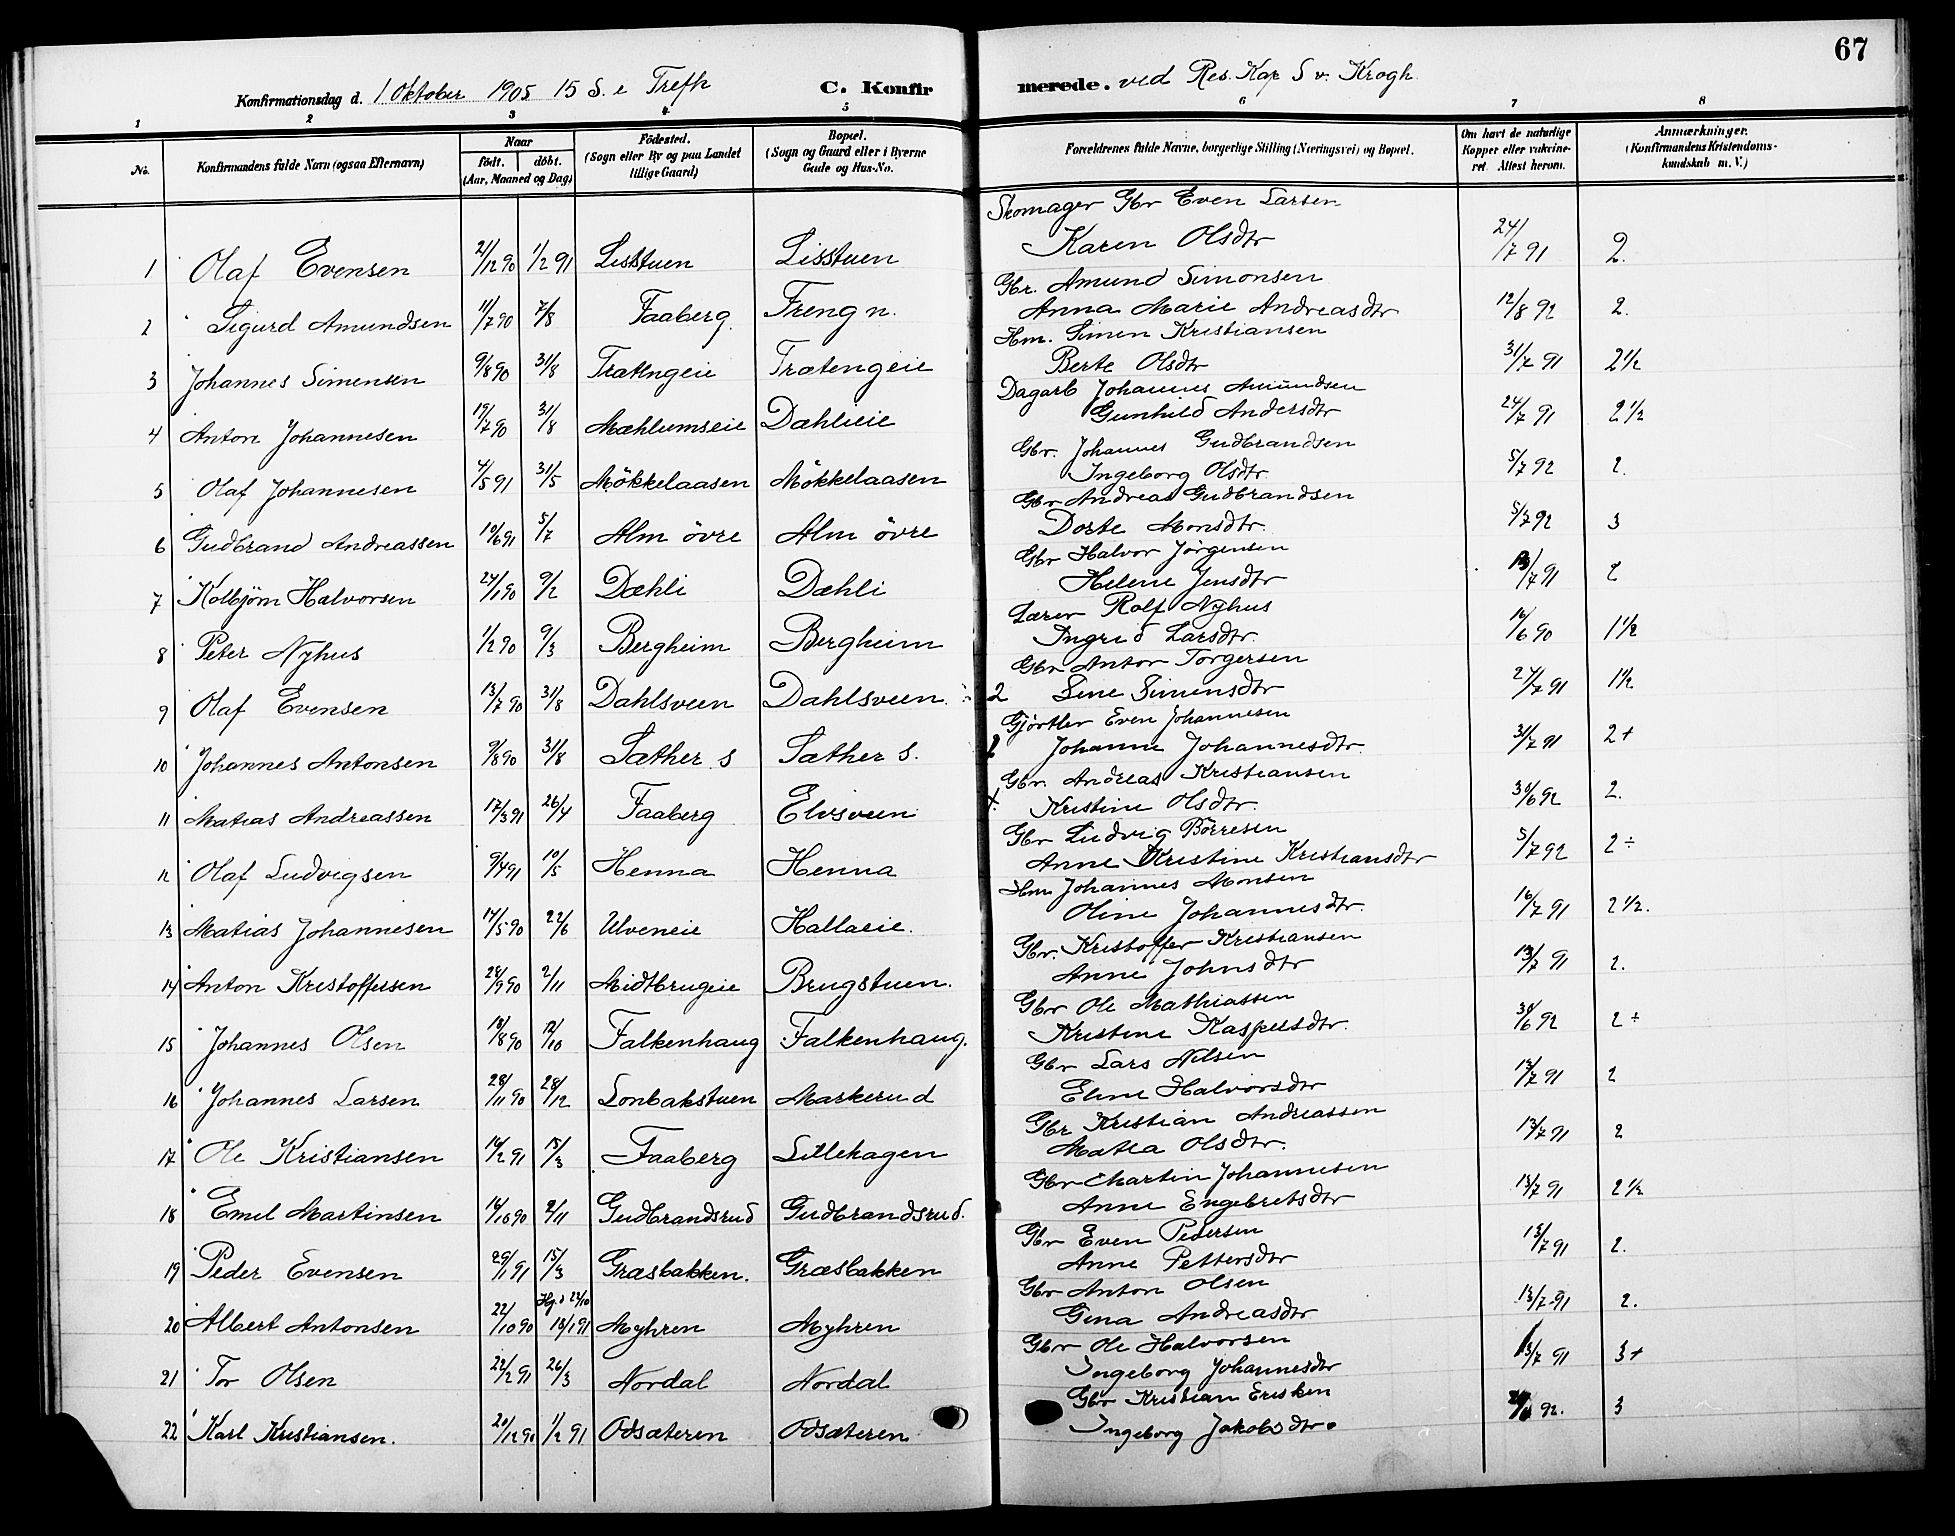 67
Konfirmationsdag d. 1 Oktober 1905 15 S. e Trefh C. Konfirmerede. ved Res. Kap S v. Krogh
1 2 3 4 5 6 7 8
No. Konfirmandens fulde Navn (ogsaa Efternavn) Naar født. døbt. (Aar, Maaned og Dag) Fødested. (Sogn eller By og paa Landet tillige Gaard) Bopæl. (Sogn og Gaard eller i Byerne Gade og Hus-No. Forældrenes fulde Navne, borgerlige Stilling (Næringsvei) og Bopæl. Om havt de naturlige Kopper eller vakcineret. Attest herom. Anmærkninger. (Konfirmandens Kristendomskundskab m. V.)
1 Olaf Evensen 21/12 90 1/2 91 Lisstuen Lisstuen Skomager Gbr Even Larsen Karen Olsdtr 24/7 91 2.
2 Sigurd Amundsen 11/7 90 7/8 Faaberg Freng n. Gbr. Amund Simonsen Anna Marie Andreasdtr 12/8 92 2.
3 Johannes Simensen 9/8 90 31/8 Trætengeie Trætengeie Hm. Simen Kristiansen Berte Olsdtr 31/7 91 2 1/2
4 Anton Johannesen 19/7 90 31/8 Mæhlumseie Dæhlieie Dagarb Johannes Amundsen Gunhild Andersdtr 24/7 91 2 1/2
5 Olaf Johannesen 4/5 91 31/5 Mökkelaasen Mökkelaasen Gbr. Johannes Gudbrandsen Ingeborg Olsdtr. 5/7 92 2.
6 Gudbrand Andreassen 10/6 91 5/7 Alm övre Alm övre Gbr Andreas Gudbrandsen Dorte Monsdtr. 5/7 92 3
7 Kolbjörn Halvorsen 24/1 90 9/2 Dæhli Dæhli Gbr Halvor Jörgensen Helene Jensdtr 13/7 91 2
8 Peter Nyhus 1/2 90 9/3 Bergheim Bergheim Lærer Rolf Nyhus Ingrid Larsdtr. 14/6 90 1 1/2
9 Olaf Evensen 13/7 90 31/8 Dahlsveen Dahlsveen. 2 Gbr Anton Torgersen Sine Simensdtr 27/7 91 1 1/2
10 Johannes Antonsen 9/8 90 31/8 Sæther s Sæther s. Gjörtler Even Johannesen Johanne Johannesdtr 31/7 91 2+
11 Matias Andreassen 17/3 91 26/4 Faaberg Elvsveen Gbr. Andreas Kristiansen Kristine Olsdtr. 30/6 92 2.
12 Olaf Ludvigsen 9/4 91 10/5 Henna Henna Gbr Ludvig Börresen Anne Kristine Kristiansdtr 5/7 92 2÷
13 Matias Johannesen 14/5 90 22/6 Ulveneie Hallaeie. Hm Johannes Monsen Oline Johannesdtr. 16/7 91 2 1/2.
14 Anton Kristoffersen 28/9 90 2/11 Midtbrugeie Brugstuen. Gbr. Kristoffer Kristiansen Anne Johnsdtr 13/7 91 2.
15 Johannes Olsen 18/8 90 12/10 Falkenhaug Falkenhaug. Gbr Ole Mathiassen Kristine Kaspersdtr. 30/6 92 2÷
16 Johannes Larsen 28/11 90 28/12 Lonbakstuen Markerud Gbr Lars Nilsen Eline Halvorsdtr 13/7 91 2
17 Ole Kristiansen 14/2 91 15/3 Faaberg Lillehagen Gbr Kristian Andreassen Matea Olsdtr. 13/7 91 2
18 Emil Martinsen 14/10 90 2/11 Gudbrandsrud Gudbrandsrud. Gbr Martin Johannesen Anne Engebretsdtr 13/7 91 2 1/2
19 Peder Evensen 29/1 91 15/3 Græsbakken. Græsbakken Gbr Even Pedersen Anne Pettersdtr 13/7 91 2.
20 Albert Antonsen 22/10 90 Hj. d 24/10 18/1 91 Myhren Myhren Gbr Anton Olsen Gina Andreasdtr 13/7 91 2.
21 Tor Olsen 22/2 91 26/3 Nordal Nordal Gbr Ole Halvorsen Ingeborg Johannesdtr 13/7 91 3+
22 Karl Kristiansen. 20/12 90 1/2 91 Odsæteren Odsæteren Gbr Kristian Eriksen Ingeborg Jakobsdtr. 92. 3